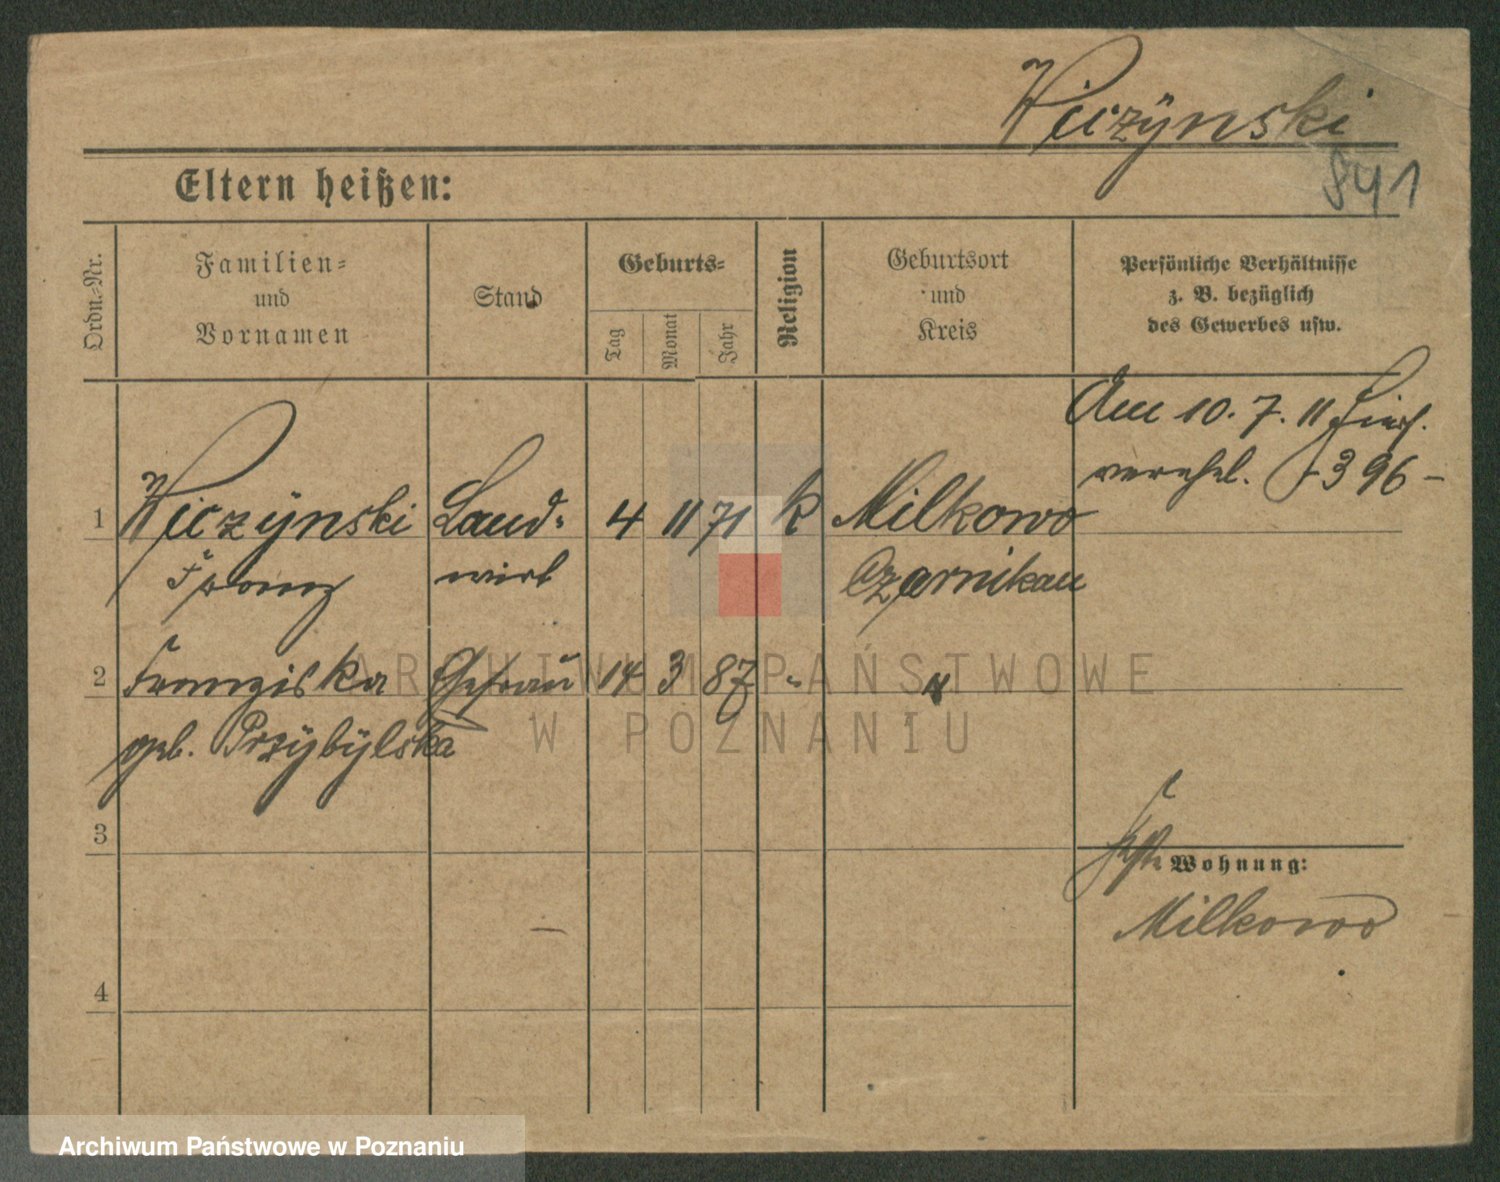 Wiczÿnski
841
Eltern heißen:
Ordn.-Nr.
Familien-
und
Vornamen
Stand
Geburts-
Tag
Monat
Jahr
Religion
Geburtsort
und
Kreis
Persönliche Verhältnisse
z. B. bezüglich
des Gewerbes usw.
Am 10. 7. 11 hier
verehel. 396 –
1 Wiczÿnski Land- 4 11 71 k Milkowo
Franz wirt Czarnikau
2 Franziska Ehefrau 14 3 87 " "
geb. Przÿbÿlska
ARCHIWUM PAŃSTWOWE
W POZNANIU
3
Wohnung:
Milkowo
4
Archiwum Państwowe w Poznaniu